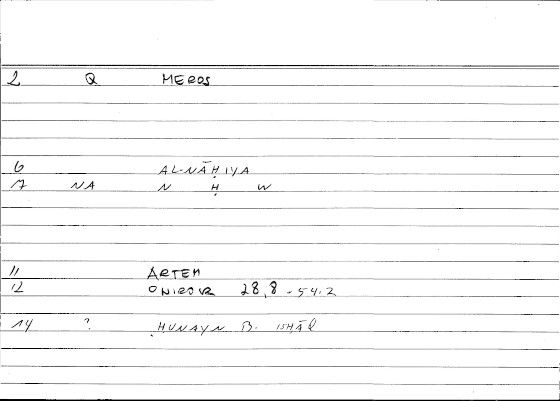 2 Q MEROS
6 AL-NĀḤIYA
7 NA N Ḥ W
11 ARTEM
12 ONIROCR 28,8 - 54.2
14 ? ḤUNAYN B. ISḤĀQ